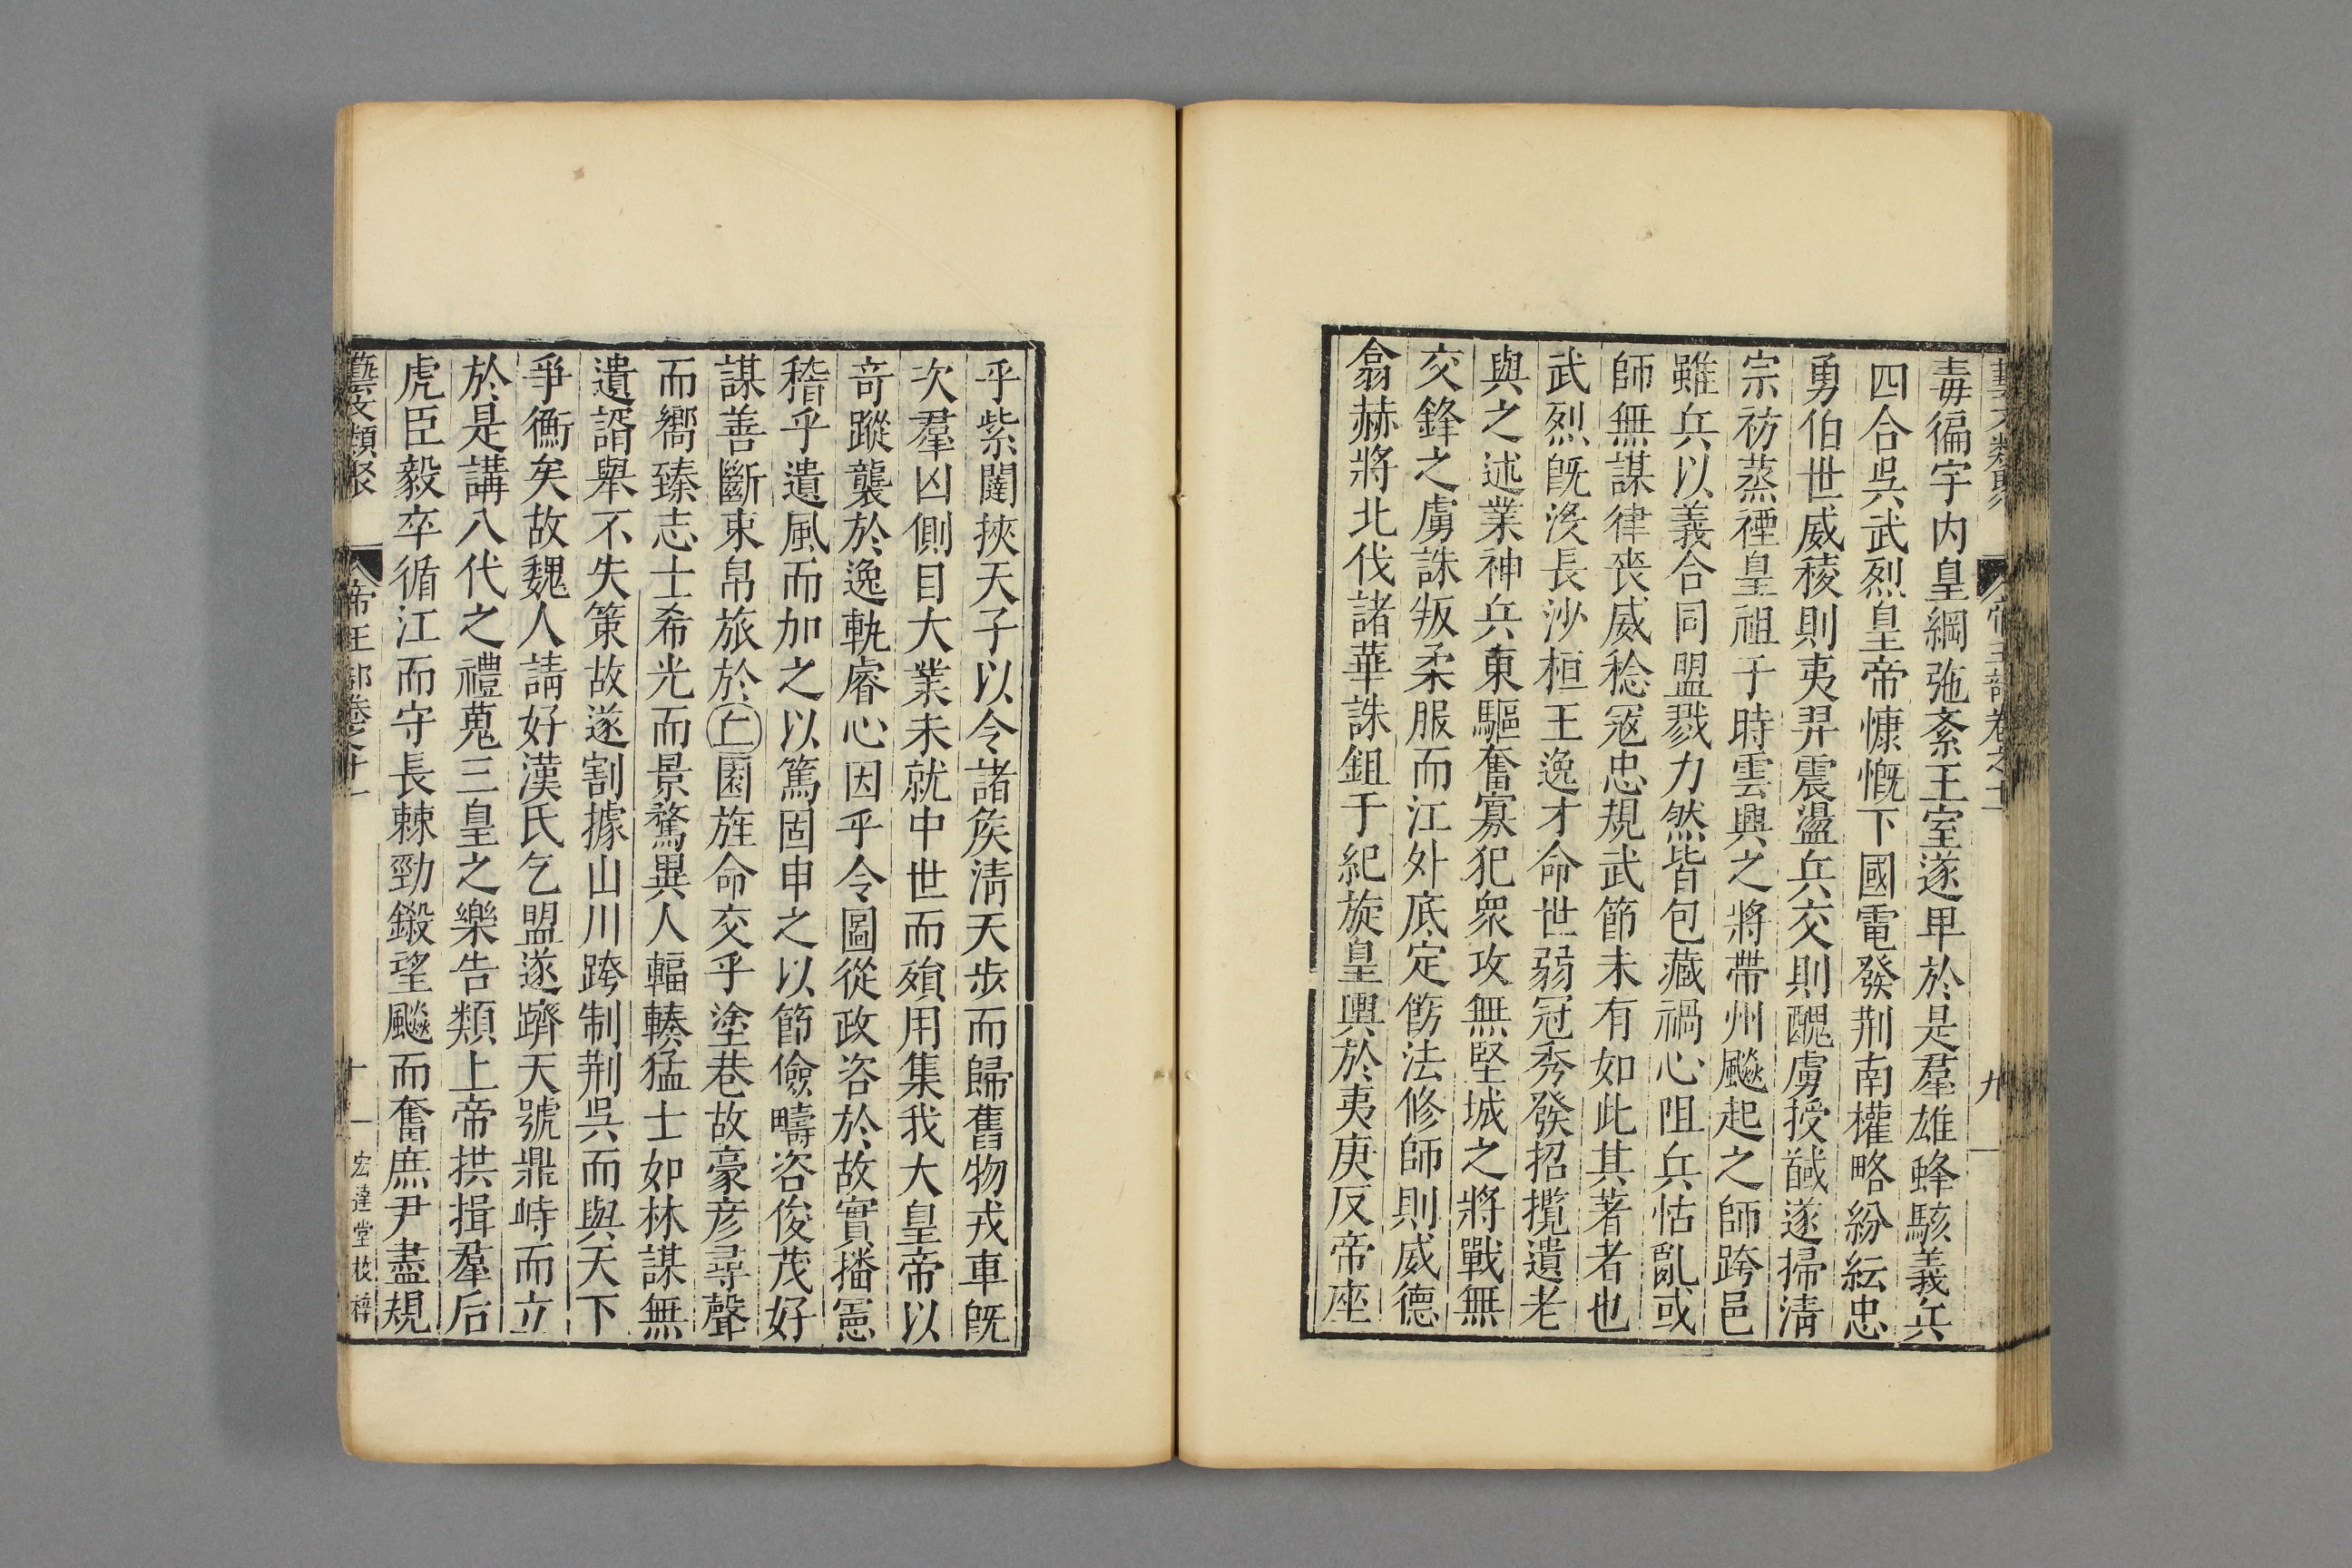 藝文類聚 帝王部卷之十一 九
毒徧宇内皇綱弛紊王室遂卑於是羣雄蜂駭義兵
四合吳武烈皇帝慷慨下國電發荆南權略紛紜忠
勇伯世威稜則夷羿震盪兵交則醜虜授馘遂掃淸
宗祊蒸禋皇祖于時雲興之將帶州飈起之師跨邑
雖兵以義合同盟戮力然皆包藏禍心阻兵怙亂或
師無謀律喪威稔寇忠規武節未有如此其著者也
武烈旣没長沙桓王逸才命世弱冠秀發招攬遺老
與之述業神兵東驅奮寡犯衆攻無堅城之將戰無
交鋒之虜誅叛柔服而江外底定飭法修師則威德
翕赫將北伐諸華誅鉏于紀旋皇輿於夷庚反帝座
乎紫闥挾天子以令諸矦淸天步而歸舊物戎車旣
次羣凶側目大業未就中世而殞用集我大皇帝以
奇蹤襲於逸軌睿心因乎令圖從政咨於故實播憲
稽乎遺風而加之以篤固申之以節儉疇咨俊茂好
謀善斷束帛旅於㊤園旌命交乎塗巷故豪彦尋聲
而嚮臻志士希光而景騖異人輻輳猛士如林謀無
遺諝舉不失策故遂割據山川跨制荆吳而與天下
爭衡矣故魏人請好漢氏乞盟遂躋天號鼎峙而立
於是講八代之禮蒐三皇之樂告類上帝拱揖羣后
虎臣毅卒循江而守長棘勁鎩望飈而奮庶尹盡規
藝文類聚 帝王部卷之十一 十 宏達堂校梓